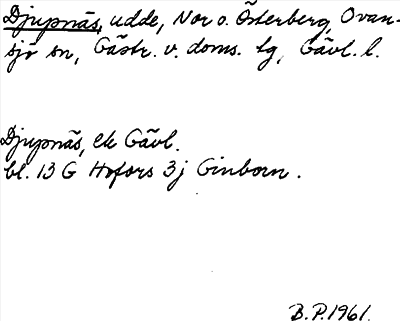 Djupnäs, udde, Nor o. Österberg, Ovan-
sjö sn, Gästr. v. doms. tg, Gävl. l.
Djupnäs, ek Gävl.
bl. 13 G Hofors 3j Ginborn.
B.P. 1961.